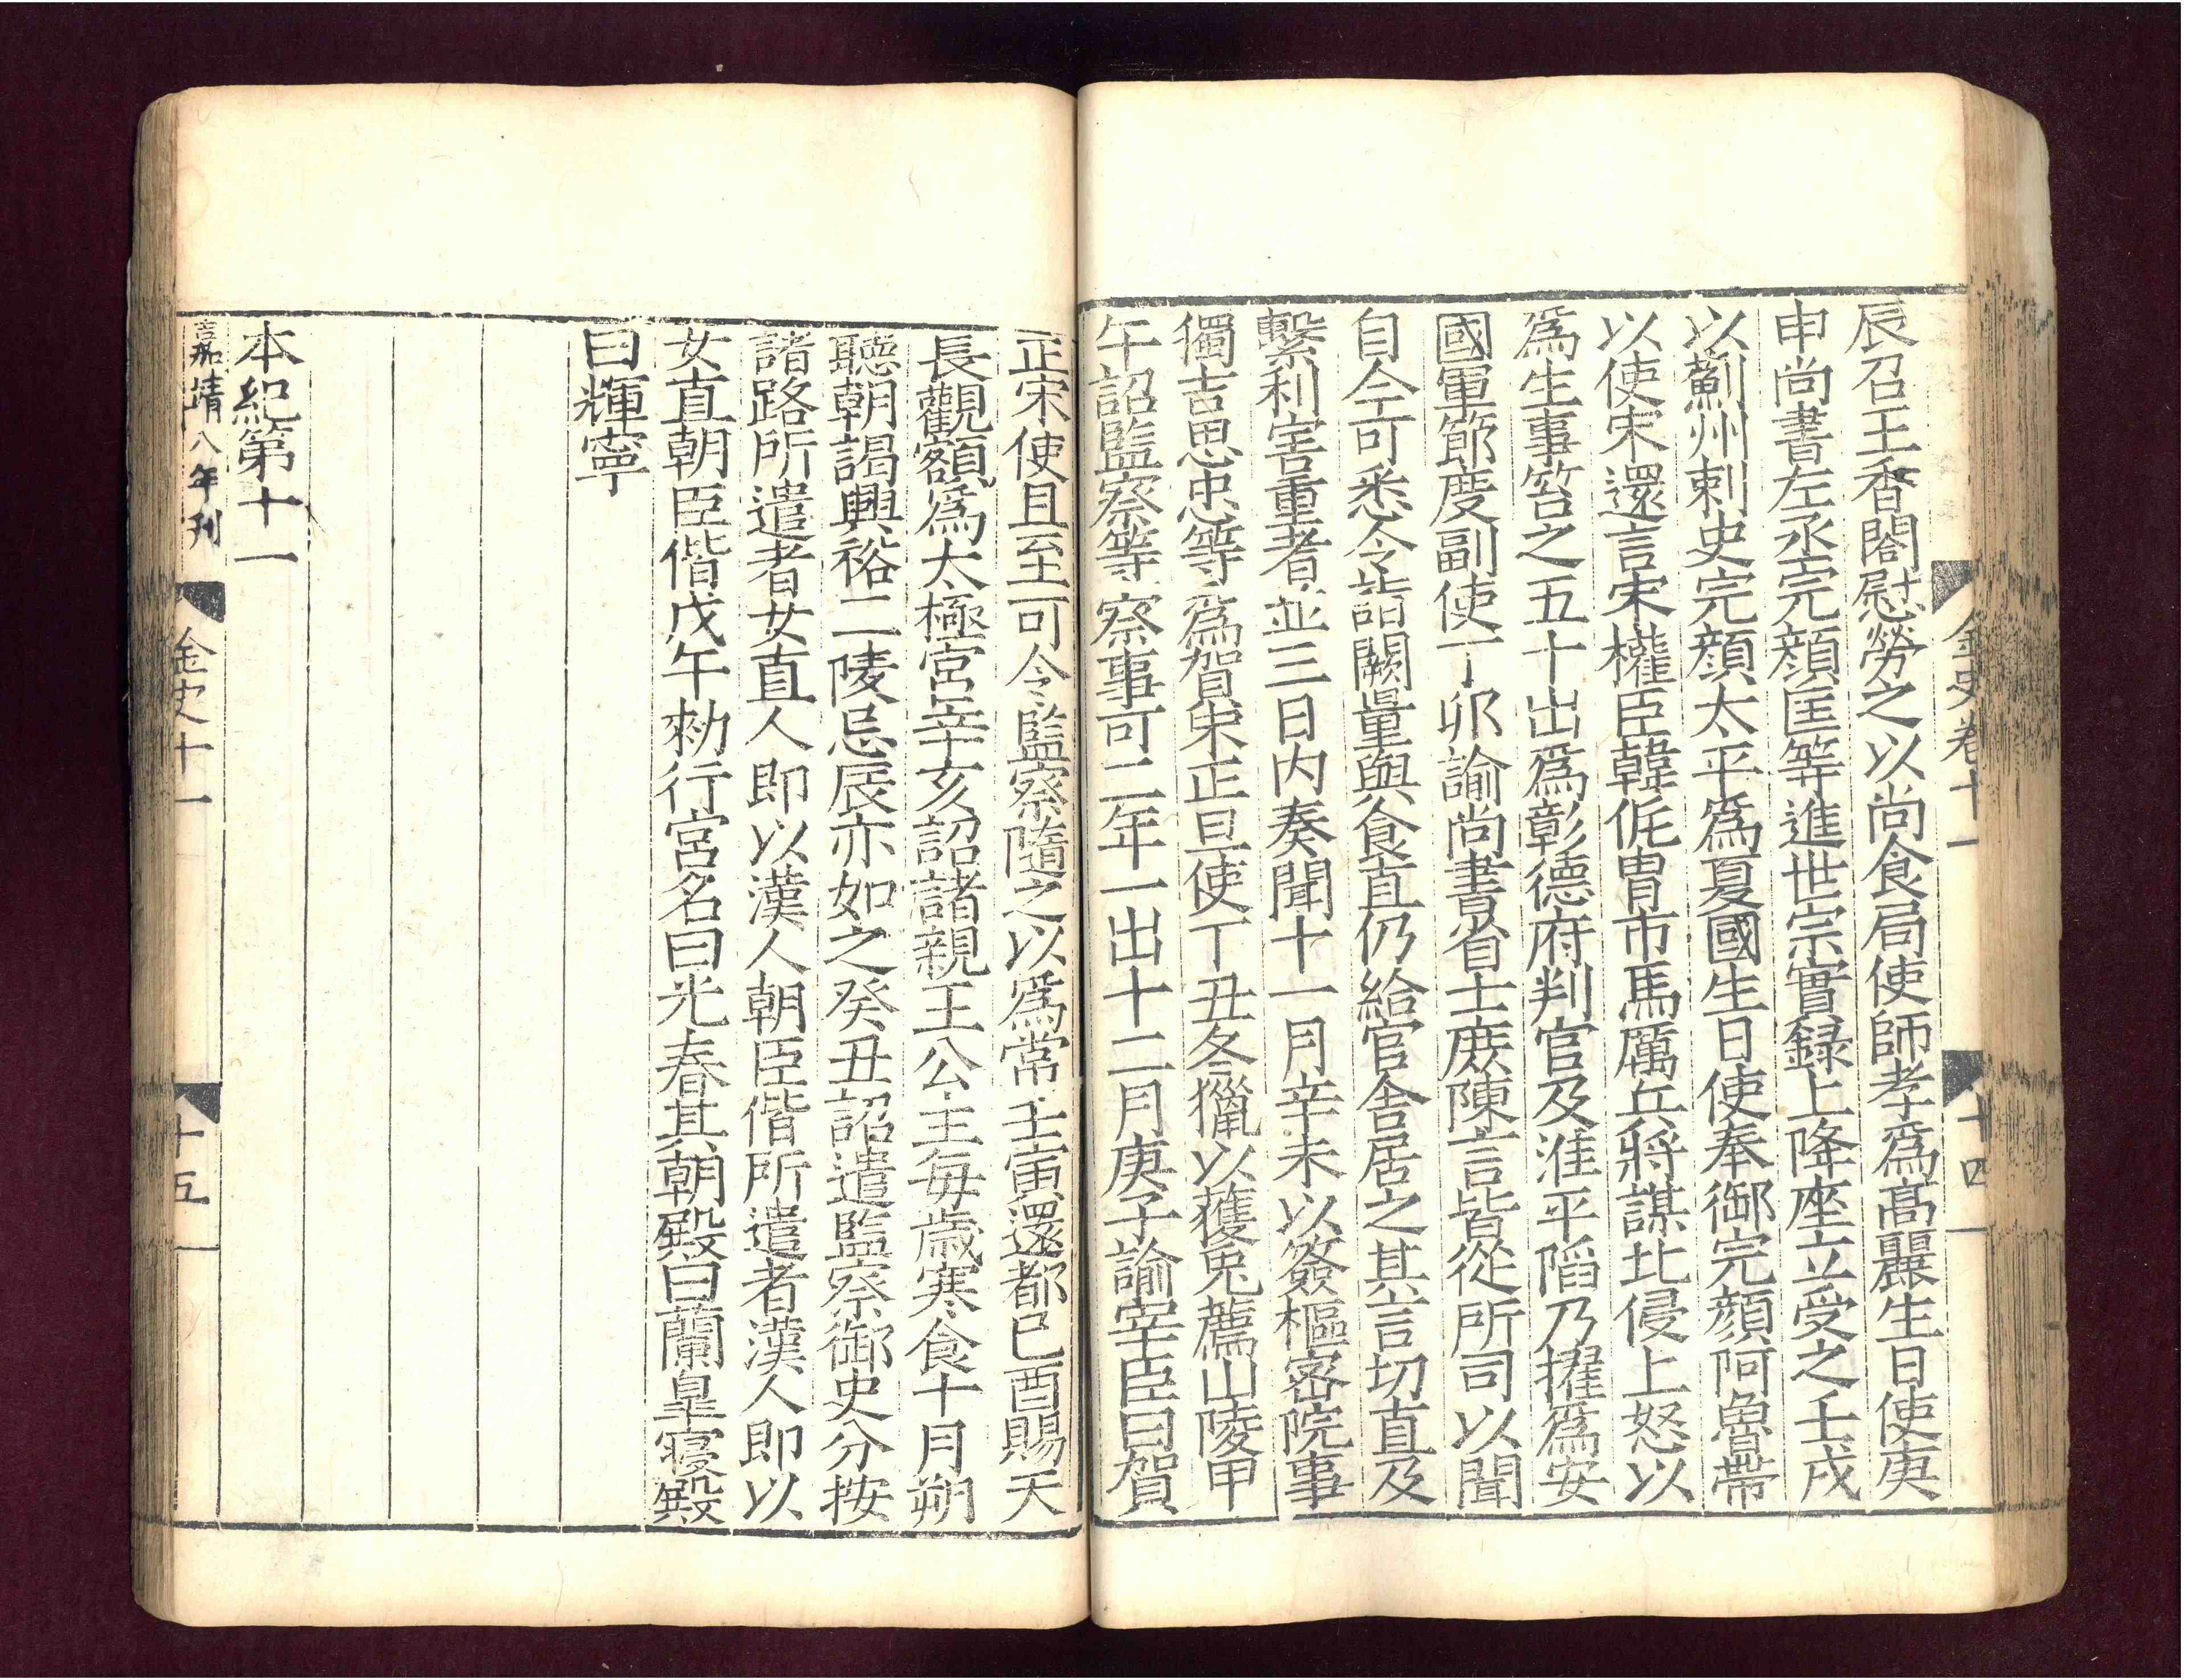 金史卷十一
十四
辰召王香閣慰勞之以尚食局使師孝爲髙麗生日使庚
申尚書左丞完顔匡等進世宗實録上降座立受之壬戌
以薊州刺史完顔太平爲夏國生日使奉御完顔阿魯帶
以使宋還言宋權臣韓侂胄市馬厲兵將謀北侵上怒以
爲生事笞之五十出爲彰德府判官及淮平陷乃擢爲安
國軍節度副使丁卯諭尚書省士庶陳言皆從所司以聞
自今可悉令詣闕量與食直仍給官舍居之其言切直及
繫利害重者並三日内奏聞十一月辛未以簽樞密院事
獨吉思忠等爲賀宋正旦使丁丑冬獵以獲兎薦山陵甲
午詔監察等察事可二年一出十二月庚子諭宰臣曰賀
正宋使且至可令監察隨之以爲常壬寅還都己酉賜天
長觀額爲太極宫辛亥詔諸親王公主每歳寒食十月朔
聽朝謁興裕二陵忌辰亦如之癸丑詔遣監察御史分按
諸路所遣者女直人即以漢人朝臣偕所遣者漢人即以
女直朝臣偕戊午勑行宫名曰光春其朝殿曰蘭皋寢殿
曰輝寧
本紀第十一
嘉靖八年刊
金史十一
十五